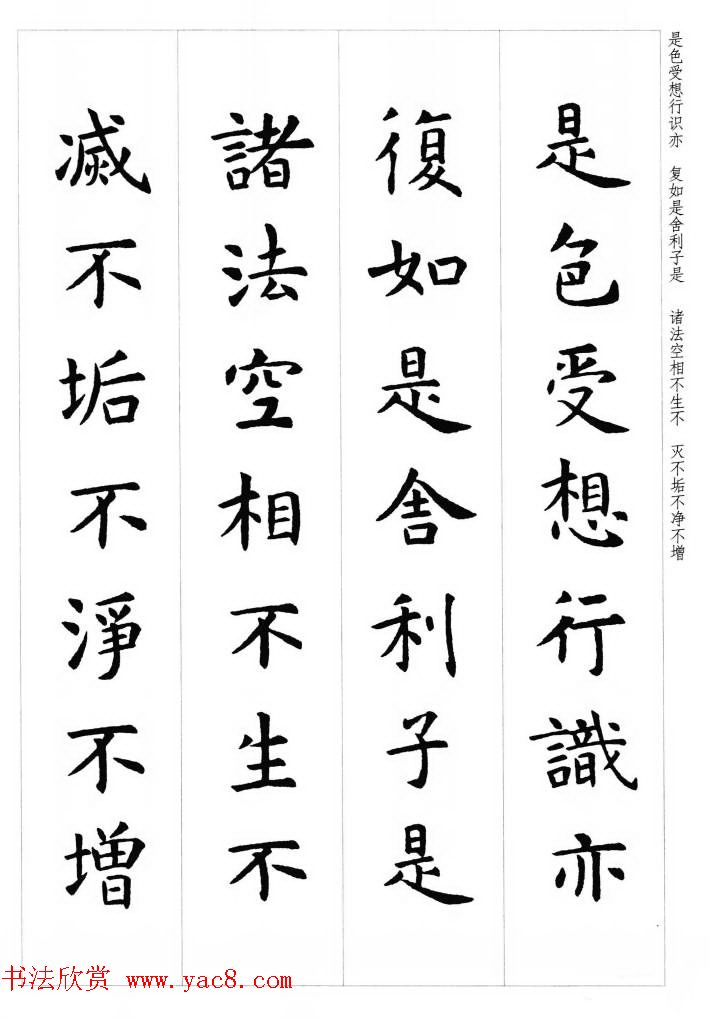 是色受想行識亦
復如是舎利子是
諸法空相不生不
滅不垢不淨不增
是色受想行识亦 复如是舍利子是 诸法空相不生不 灭不垢不净不增
书法欣赏 www.yac8.com